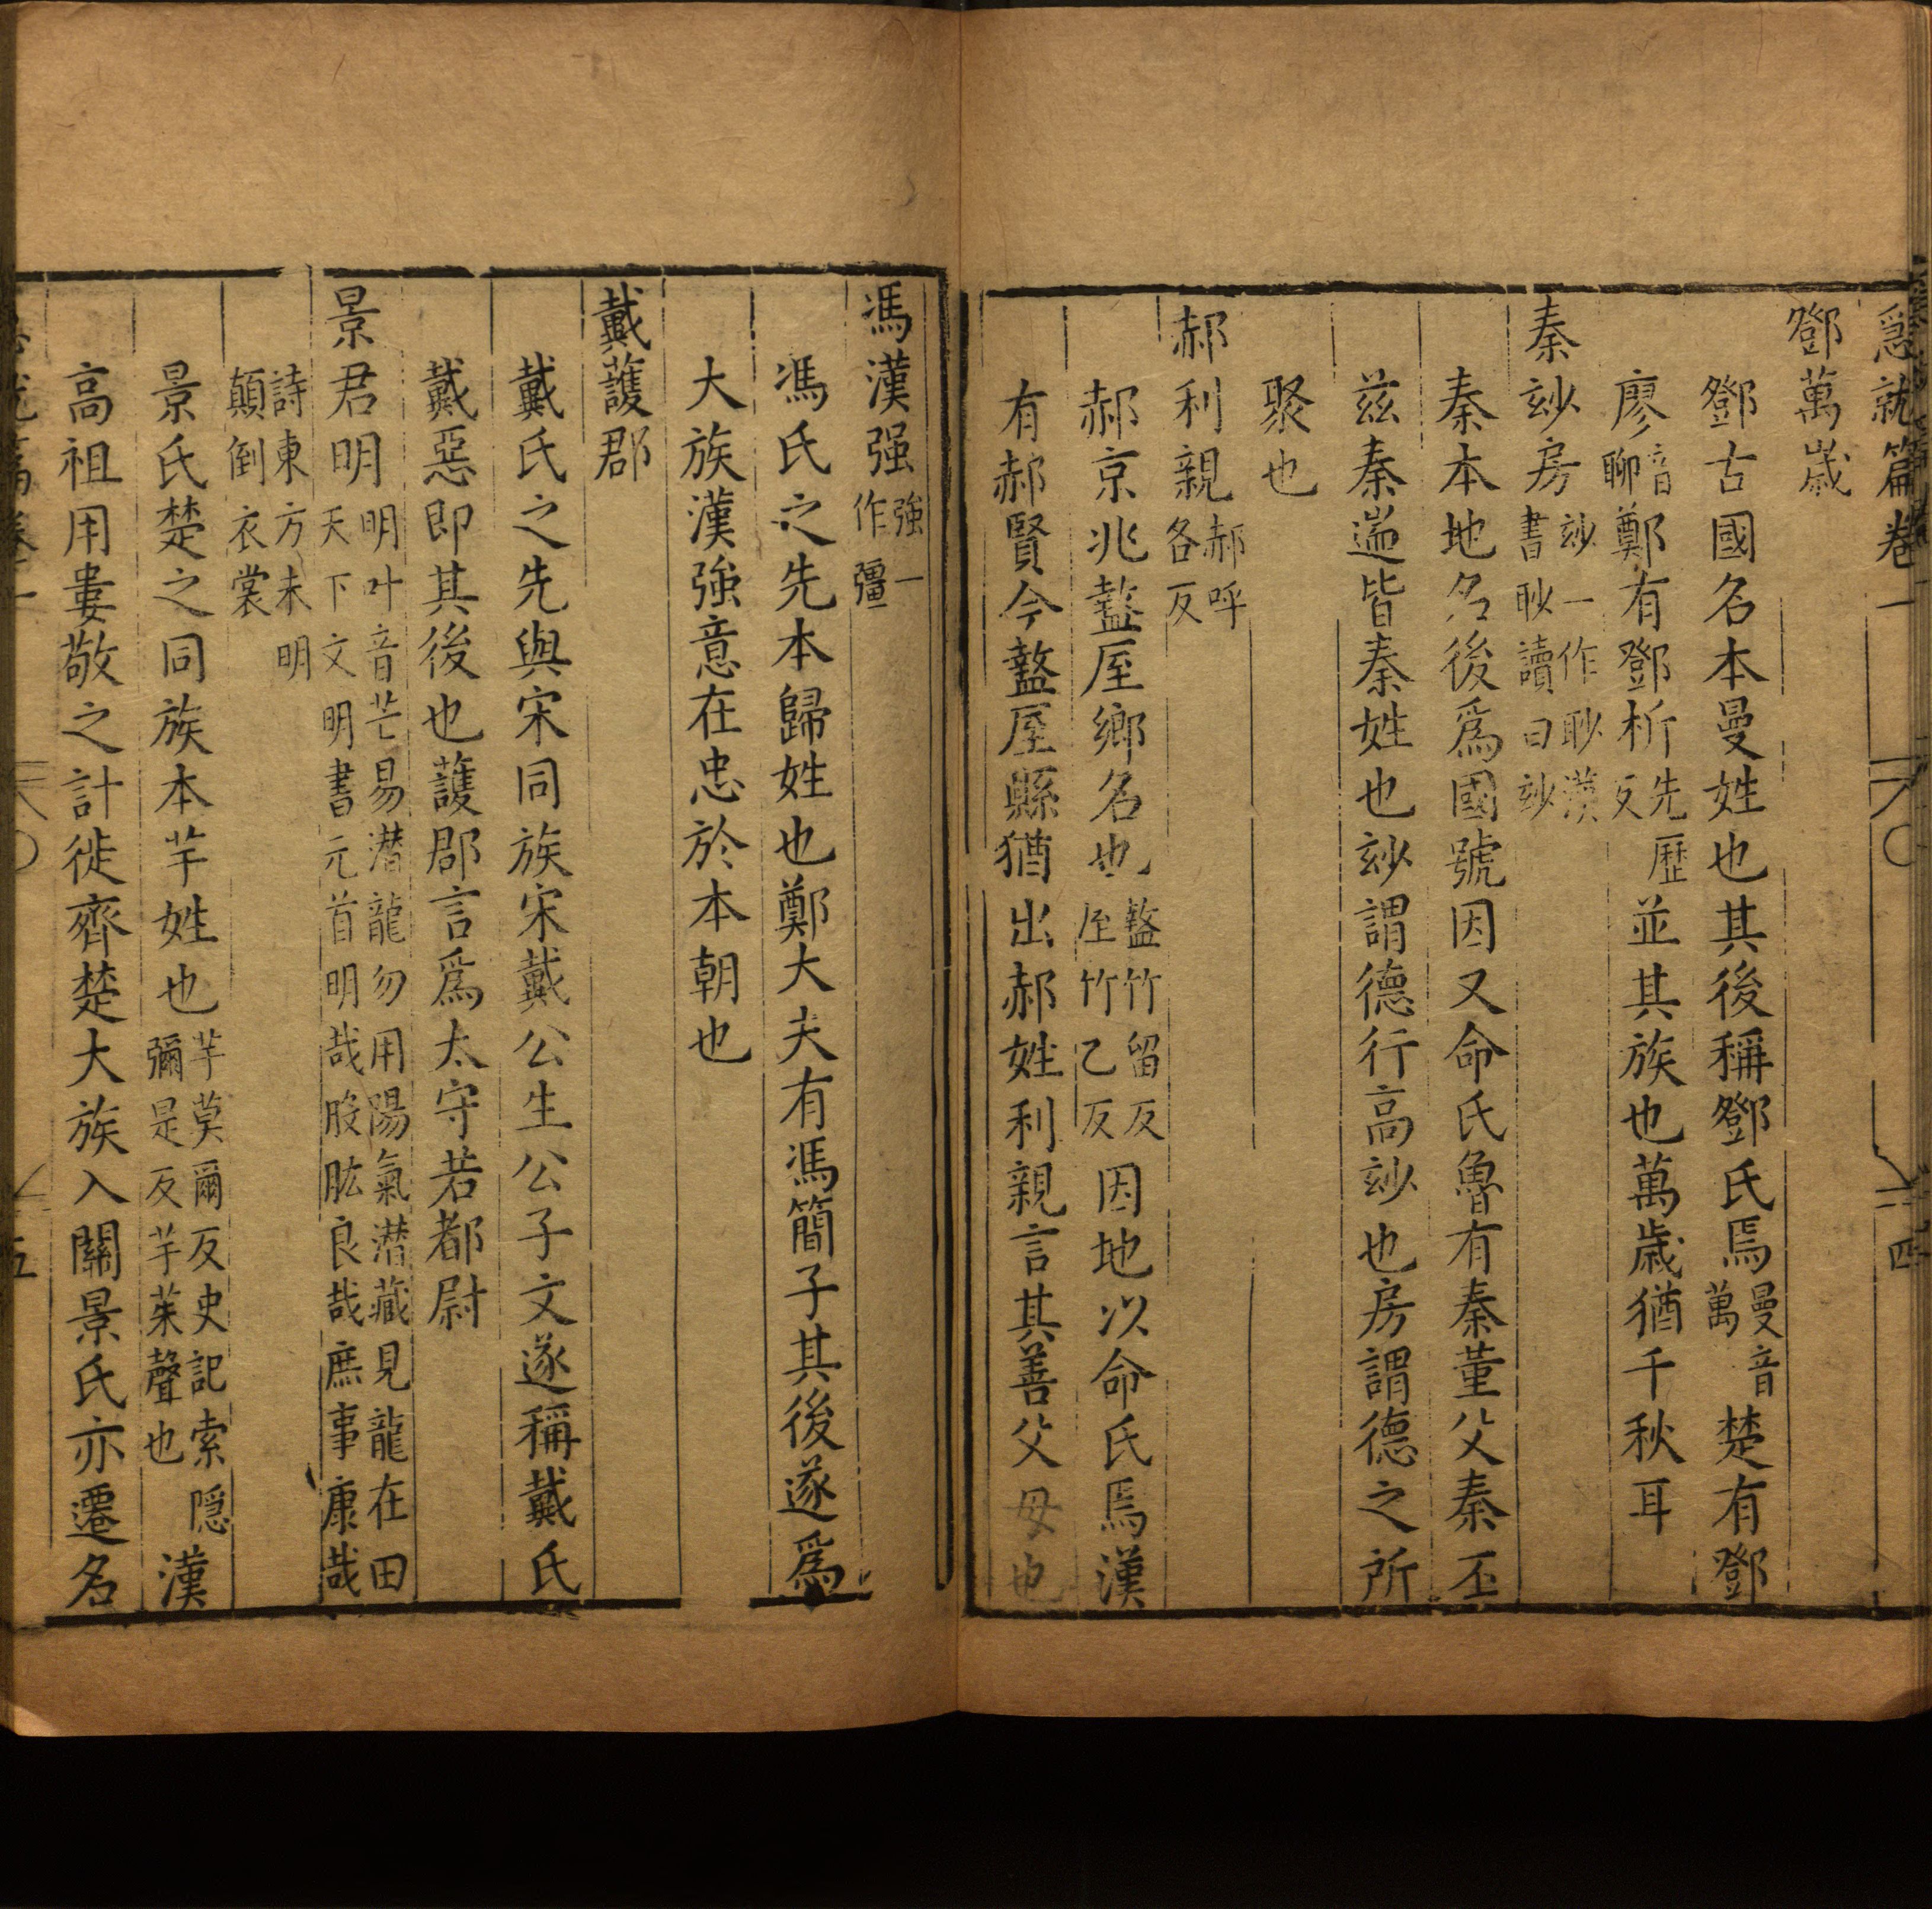 急就篇卷一 四
鄧萬歲
鄧古國名本曼姓也其後稱鄧氏焉曼音萬楚有鄧
廖音聊鄭有鄧析先歷反並其族也萬歲猶千秋耳
秦玅房玅一作眇漢書眇讀曰玅
秦本地名後爲國號因又命氏魯有秦董父秦丕
兹秦遄皆秦姓也玅謂德行高玅也房謂德之所
聚也
郝利親郝呼各反
郝京兆盩厔鄉名也盩竹留反厔竹乙反因地以命氏焉漢
有郝賢今盩厔縣猶出郝姓利親言其善父母也
馮漢强強一作彊
馮氏之先本歸姓也鄭大夫有馮簡子其後遂爲
大族漢強意在忠於本朝也
戴護郡
戴氏之先與宋同族宋戴公生公子文遂稱戴氏
戴惡即其後也護郡言爲太守若都尉
景君明明叶音芒易潜龍勿用陽氣潜藏見龍在田天下文明書元首明哉股肱良哉庶事康哉
詩東方未明顛倒衣裳
景氏楚之同族本芈姓也芈莫爾反史記索隠彌是反芈茱聲也漢
高祖用婁敬之計徙齊楚大族入關景氏亦遷名
五